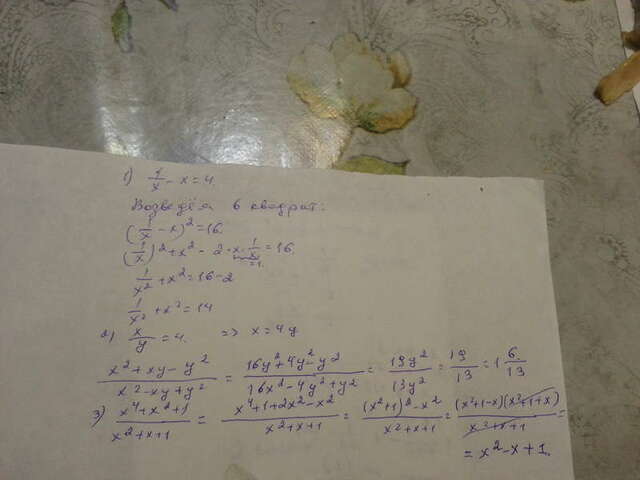 1) 1/x - x = 4.
Возведём в квадрат:
(1/x - x)² = 16.
(1/x)² + x² - 2·x·1/x = 16.
=1.
1/x² + x² = 16-2
1/x² + x² = 14
2) x/y = 4. => x = 4y
(x² + xy - y²)/(x² - xy + y²) = (16y² + 4y² - y²)/(16x² - 4y² + y²) = 19y²/13y² = 19/13 = 1 6/13
3) (x⁴ + x² + 1)/(x² + x + 1) = (x⁴ + 1 + 2x² - x²)/(x² + x + 1) = ((x² + 1)² - x²)/(x² + x + 1) = (x² + 1 - x)(x² + 1 + x)/(x² + x + 1) =
= x² - x + 1.